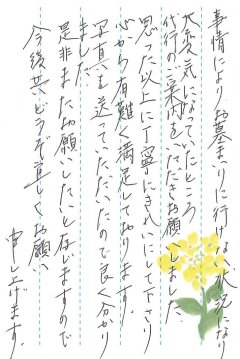 事情によりお墓まいりに行けない状況になり
大変気になっていたところ
代行の案内をいただきお願いしました。
思った以上に丁寧にきれいにして下さり
心から有難く満足しております。
写真も送っていただいたので良く分かり
ました。
是非またお願いしたいと存じますので
今後共どうぞ宜しくお願い
申し上げます。